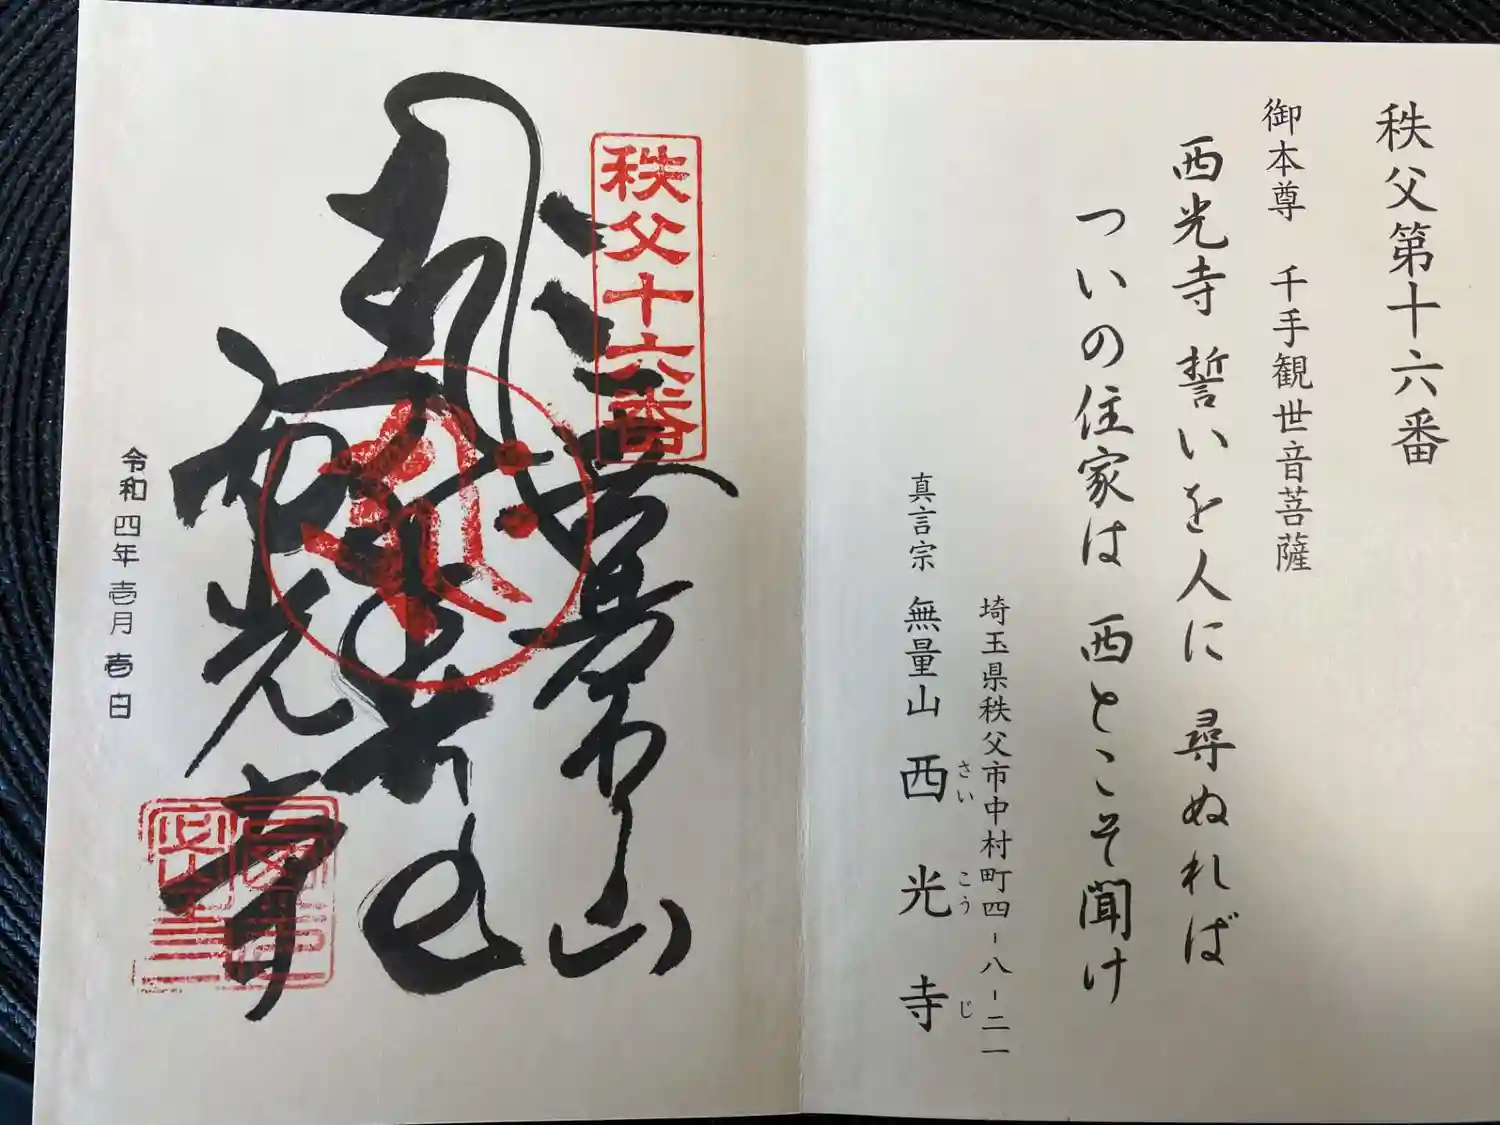 秩父第十六番
御本尊 千手観世音菩薩
西光寺 誓いを人に 尋ぬれば
ついの住家は 西とこそ聞け
埼玉県秩父市中村町四-八-二一
真言宗 無量山 西光寺
さい こう じ
秩父十六番
無量山
西光寺
令和四年壱月壱日